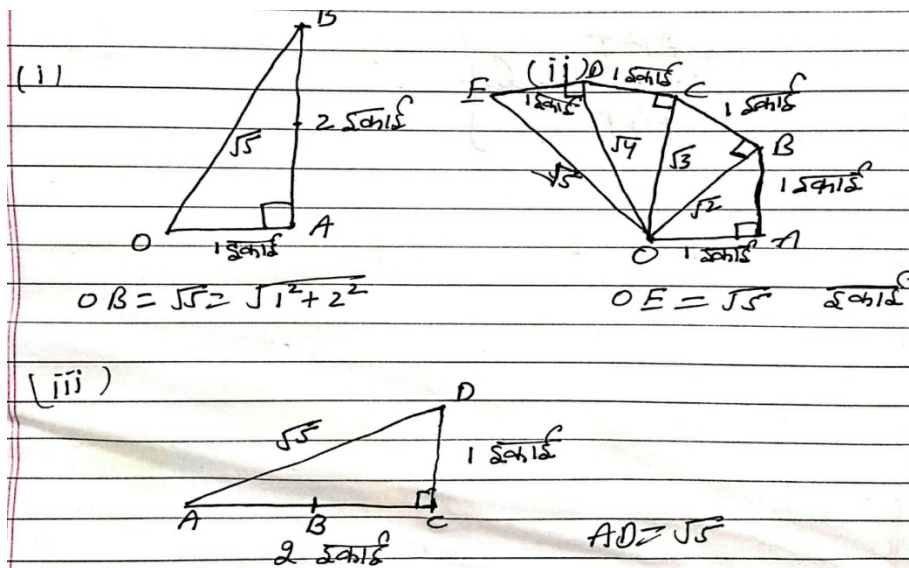 (i)
B
2 इकाई
√5
O
A
1 इकाई
OB = √5 = √1²+2²
(ii)
E
D
1 इकाई
C
1 इकाई
1 इकाई
B
√4
√3
√5
√2
1 इकाई
O
1 इकाई
A
OE = √5 इकाई
(iii)
D
√5
1 इकाई
A
B
C
2 इकाई
AD = √5